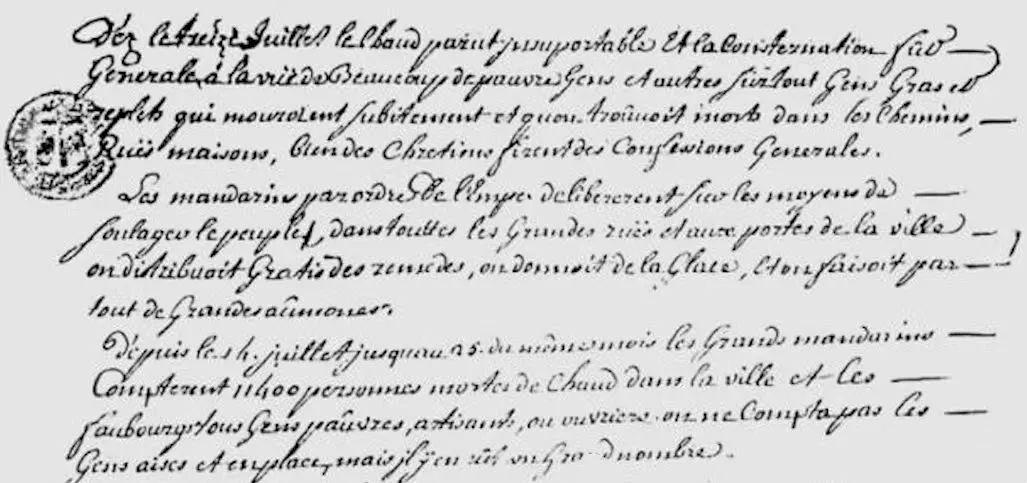 Déz le treize Juillet le Chaud parut insuportable Et la Consternation fut
Generale, à la vüe de Beaucoup de pauvres Gens et autres sur tout Gens Gras et
replets qui mouroient subitement et qu'on trouvoit morts dans les Chemins,
Rües maisons, bien des Chretiens firent des Confessions Generales.
Les mandarins par ordre de l'Empr. delibererent sur les moyens de
soulager le peuple, dans touttes les Grandes rües et aux portes de la ville
on distribuoit Gratis des remedes, on donnoit de la Glace, Et on faisoit par
tout de Grandes aûmones.
dépuis le 14. juillet jusquau 25. du même mois les Grands mandarins
Compterent 11400 personnes mortes de Chaud dans la ville et les
faubourgs tous Gens paûvres, artisants, ou ouvriers. on ne Compta pas les
Gens aises et en place, mais il y en eût un Grand nombre.